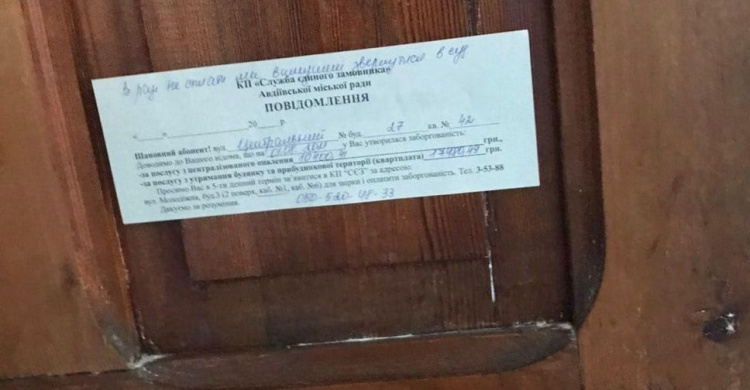 В разі не оплати ми вимушені звернутися в суд
КП «Служба єдиного замовника»
Авдіївської міської ради
ПОВІДОМЛЕННЯ
«___»________20___Р
Шановний абонент! вул. Центральний № буд. 27 кв. № 42
Доводимо до Вашого відома, що на у Вас утворилася заборгованість:
-за послугу з централізованого опалення грн.,
-за послугу з утримання будинку та прибудинкової території (квартплата) грн.
Просимо Вас в 5-ти денний термін з'явитися в КП "ССЗ" за адресою:
вул. Молодіжна, буд.3 (2 поверх, каб. №1, каб. №6) для звірки і оплатити заборгованість. Тел. 3-53-88
Дякуємо за розуміння. 050-520-48-33